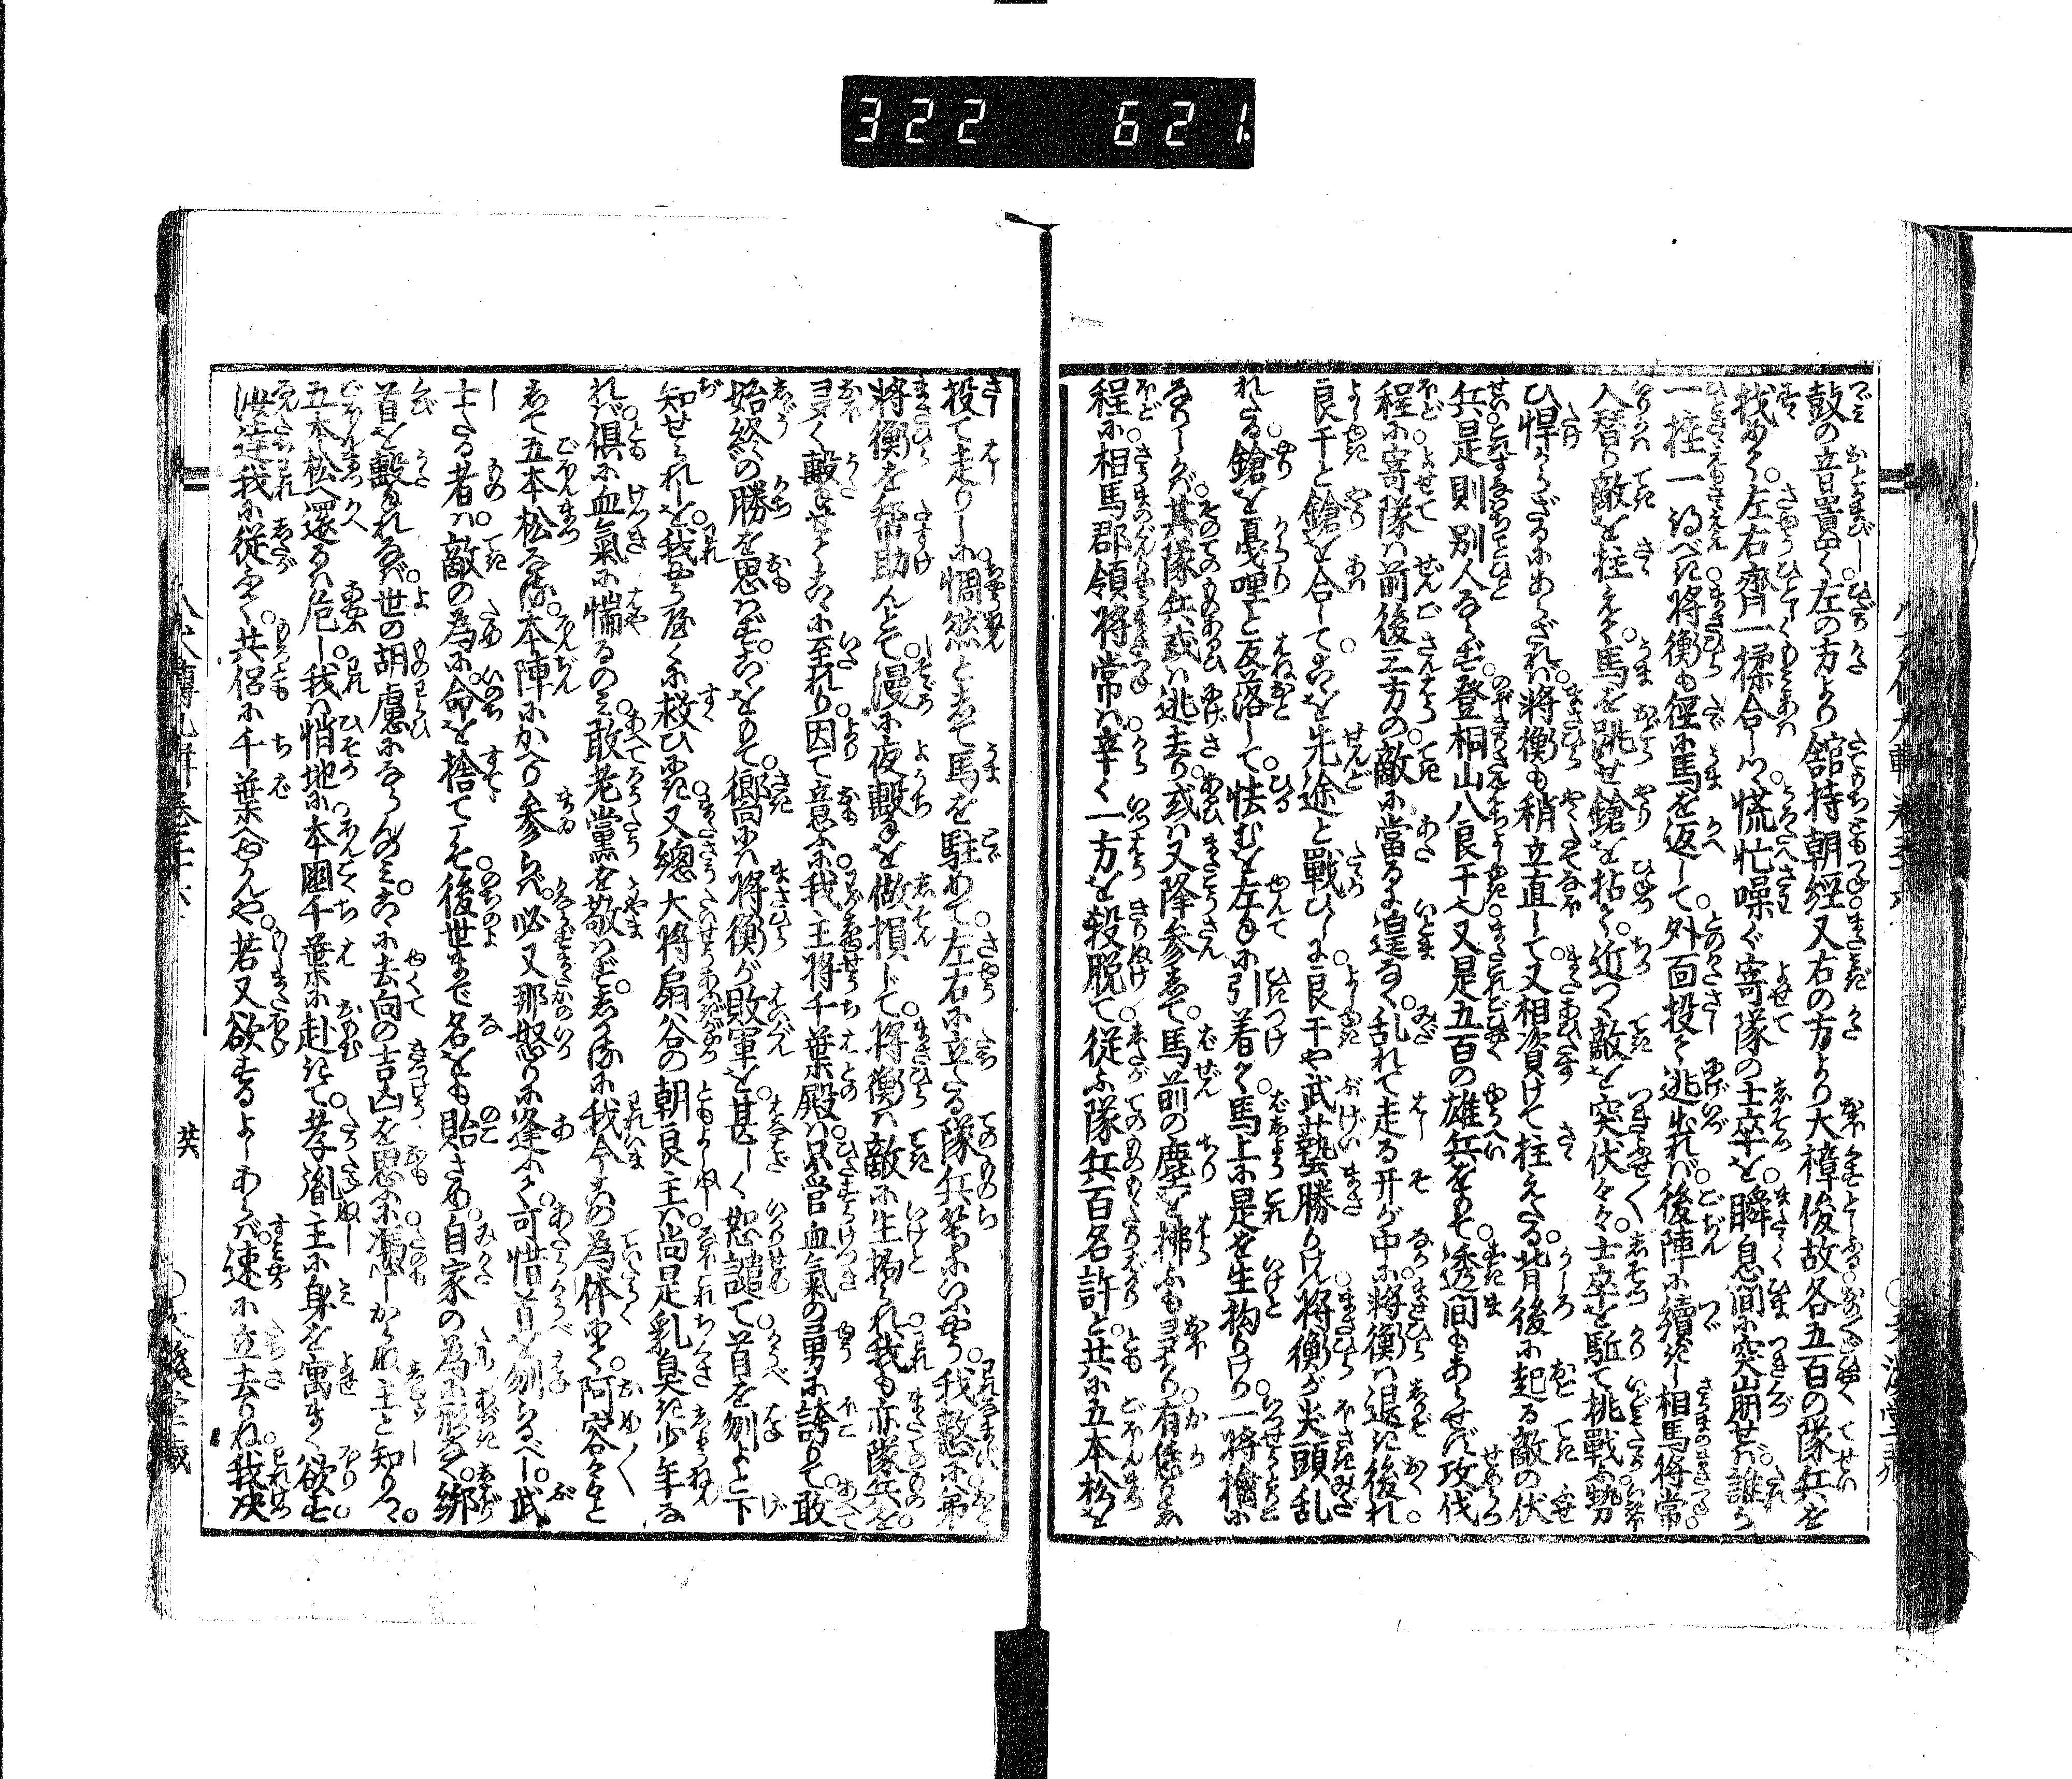 322 621
鼓の音響く左の方より館持朝經又右の方より大樟俊故各五百の隊兵を
找めて左右齊一揉合しつゝ慌忙噪ぐ寄隊の士卒を瞬息間に突崩せば誰か
一拄一るべき將衡も徑に馬を返して外面投て逃出れば後陣に續きし相馬將常
入替り敵を拄えて馬を跳せ鎗を拈て近づく敵を突伏々々士卒を駈て挑戰ふ勢
ひ悍からざるにあらざれば將衡も稍立直して又相資けて拄えたる背後に起る敵の伏
兵是則別人ならず登桐山八良干也又是五百の雄兵をもて透間もあらせず攻伐
程に寄隊は前後三方の敵に當るに遑なく乱れて走る开が中に將衡は退き後れ
良干と鎗を合してこゝを先途と戰ひしに良干や武藝勝りけん將衡が尖頭乱
れたる鎗を戞哩と反落して怯むを左手に引着て馬上に是を生拘りけり一將擒に
なりしかば其隊兵或は逃去り或は又降參して馬前の塵を拂ふもヨヨかり有恁りし
程に相馬郡領將常は辛く一方を殺脱て從ふ隊兵百名許と共に五本松を
投て走りしに惆然として馬を駐めて左右に立たる隊兵等にいふやう我憖に弟
將衡を幇助んとて漫に夜擊を做損じて將衡は敵に生拘られ我も亦隊兵を
ヨヨく擊せてこゝに至れり因て意ふに我主將千葉殿は只管血氣の勇に誇りて敢
始終の勝を思はずこゝをもて嚮には將衡が敗軍を甚しく怒譴て首を刎よと下
知せられしを我やうやくに救ひにき又總大將扇谷の朝良主は尚是乳臭き少年な
れば倶に血氣に惴るのみ敢老黨を敬はずしかるに我今この為体にて阿容々々と
して五本松なる本陣にかへり參らば必又那怒りに逢ふて可惜首を刎らるべし武
士たる者は敵の為に命を捨てこそ後世まで名をも貽さめ自家の為に形なく綁
首を擊れなば世の胡慮にならんのみこゝに去向の吉凶を思ふに憑しからぬ主と知りつゝ
五本松へ還るは危し我は悄地に本國千葉に赴きて孝胤主に身を寓まく欲す
汝達我に從ふて共侶に千葉へゆかんや若又欲するよしあらば速に立去りね我决